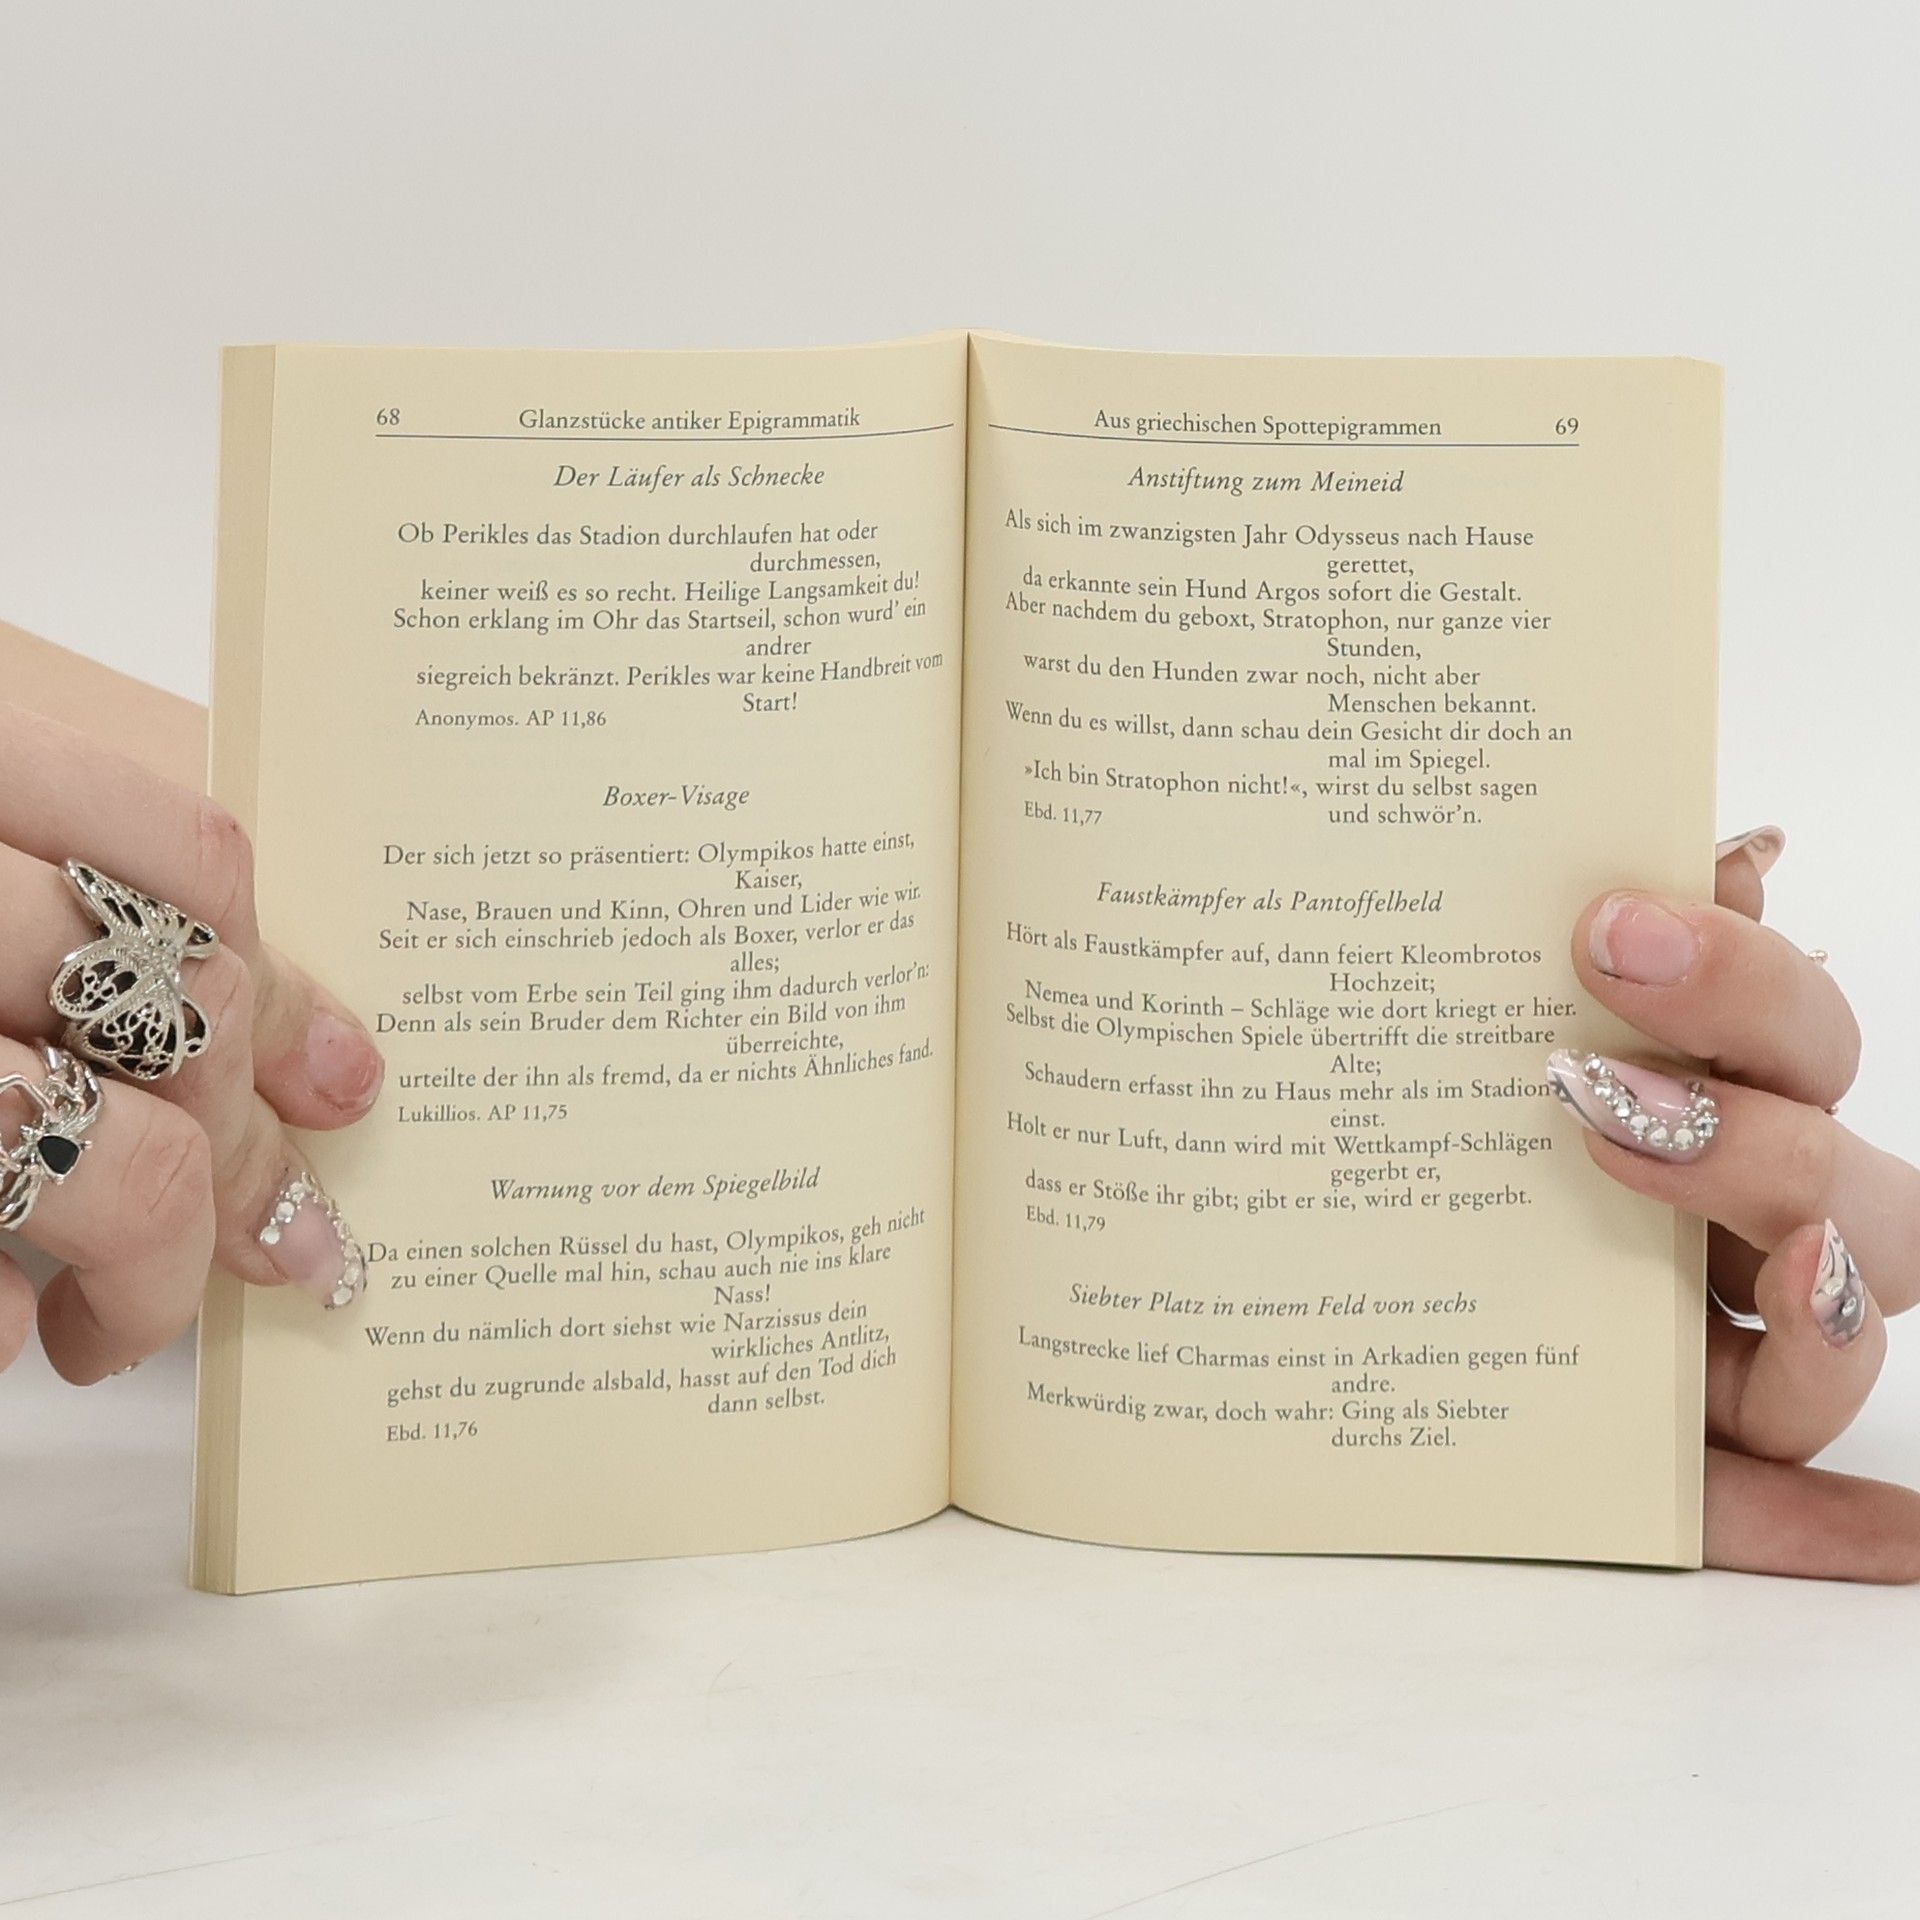 68 Glanzstücke antiker Epigrammatik
Der Läufer als Schnecke
Ob Perikles das Stadion durchlaufen hat oder
durchmessen,
keiner weiß es so recht. Heilige Langsamkeit du!
Schon erklang im Ohr das Startseil, schon wurd’ ein
andrer
siegreich bekränzt. Perikles war keine Handbreit vom
Start!
Anonymos. AP 11,86
Boxer-Visage
Der sich jetzt so präsentiert: Olympikos hatte einst,
Kaiser,
Nase, Brauen und Kinn, Ohren und Lider wie wir.
Seit er sich einschrieb jedoch als Boxer, verlor er das
alles;
selbst vom Erbe sein Teil ging ihm dadurch verlor’n:
Denn als sein Bruder dem Richter ein Bild von ihm
überreichte,
urteilte der ihn als fremd, da er nichts Ähnliches fand.
Lukillios. AP 11,75
Warnung vor dem Spiegelbild
Da einen solchen Rüssel du hast, Olympikos, geh nicht
zu einer Quelle mal hin, schau auch nie ins klare
Nass!
Wenn du nämlich dort siehst wie Narzissus dein
wirkliches Antlitz,
gehst du zugrunde alsbald, hasst auf den Tod dich
dann selbst.
Ebd. 11,76
Aus griechischen Spottepigrammen 69
Anstiftung zum Meineid
Als sich im zwanzigsten Jahr Odysseus nach Hause
gerettet,
da erkannte sein Hund Argos sofort die Gestalt.
Aber nachdem du geboxt, Stratophon, nur ganze vier
Stunden,
warst du den Hunden zwar noch, nicht aber
Menschen bekannt.
Wenn du es willst, dann schau dein Gesicht dir doch an
mal im Spiegel.
»Ich bin Stratophon nicht!«, wirst du selbst sagen
und schwör’n.
Ebd. 11,77
Faustkämpfer als Pantoffelheld
Hört als Faustkämpfer auf, dann feiert Kleombrotos
Hochzeit;
Nemea und Korinth – Schläge wie dort kriegt er hier.
Selbst die Olympischen Spiele übertrifft die streitbare
Alte;
Schaudern erfasst ihn zu Haus mehr als im Stadion
einst.
Holt er nur Luft, dann wird mit Wettkampf-Schlägen
gegerbt er,
dass er Stöße ihr gibt; gibt er sie, wird er gegerbt.
Ebd. 11,79
Siebter Platz in einem Feld von sechs
Langstrecke lief Charmas einst in Arkadien gegen fünf
andre.
Merkwürdig zwar, doch wahr: Ging als Siebter
durchs Ziel.